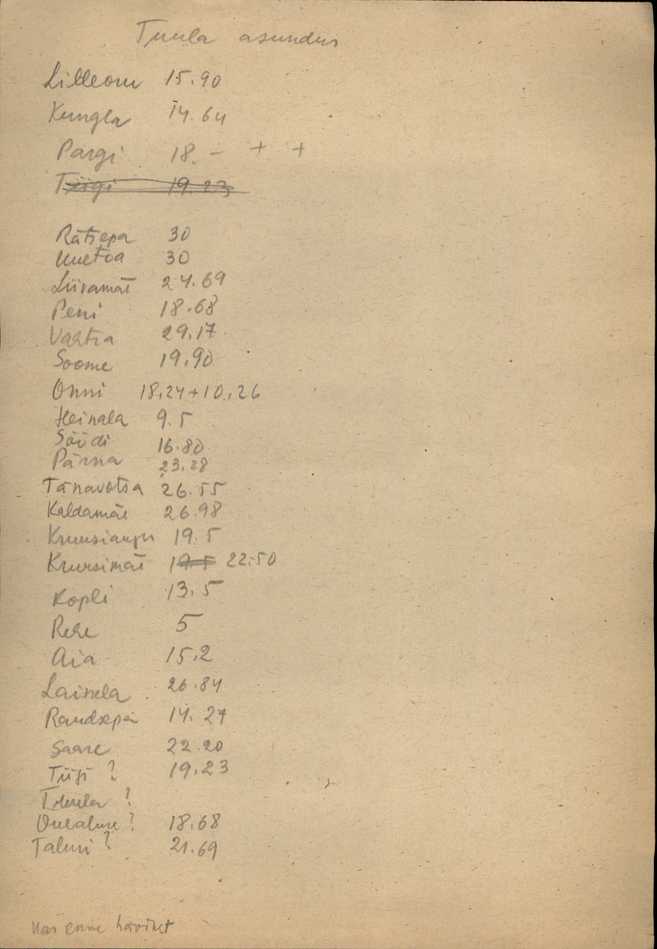 Tuula asundus
Lilleoru 15.90
Kungla 14.64
Pargi 18.- + +
Tiigi 19.23
Rätsepa 30
Uuetoa 30
Liivamäe 24.69
Peni 18.68
Vahtra 29.17
Soome 19.90
Onni 18.24+10.26
Heinala 9.5
Söödi 16.80
Pärna 23.28
Tänavotsa 26.55
Kaldamäe 26.98
19.5
Kruusimäe 19.5 22.50
Kopli 13.5
Rehe 5
Aia 15.2
26.84
Raudsepa 14.27
Saare 22.20
Tiigi ? 19.23
Tuula ?
? 18.68
Talmi ? 21.69
enne